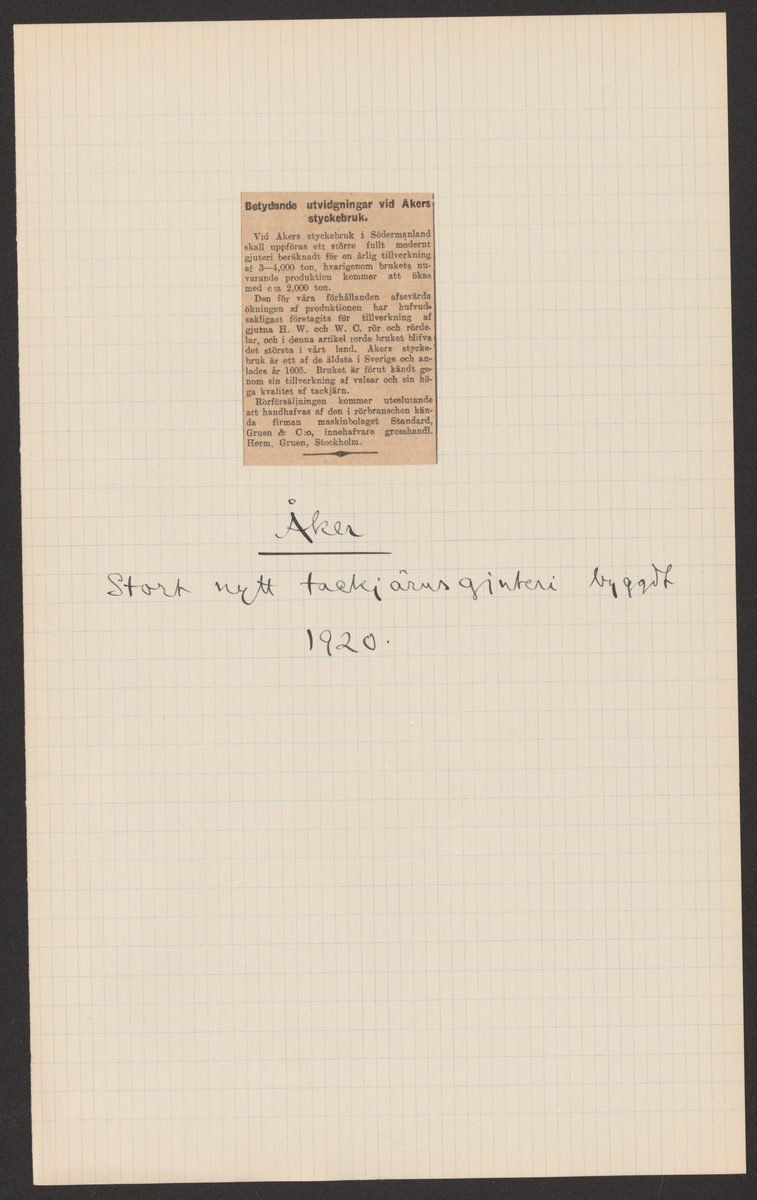 Betydande utvidgningar vid Åkers
styckebruk.
Vid Åkers styckebruk i Södermanland
skall uppföras ett större fullt modernt
gjuteri beräknadt för en årlig tillverkning
af 3—4,000 ton, hvarigenom brukets nu-
varande produktion kommer att ökas
med c:a 2,000 ton.
Den för våra förhållanden afsevärda
ökningen af produktionen har hufvud-
sakligast företagits för tillverkning af
gjutna H. W. och W. C. rör och rörde-
lar, och i denna artikel torde bruket blifva
det största i vårt land. Åkers stycke-
bruk är ett af de äldsta i Sverige och an-
lades år 1605. Bruket är förut kändt ge-
nom sin tillverkning af valsar och sin hö-
ga kvalitet af tackjärn.
Rörförsäljningen kommer uteslutande
att handhafvas af den i rörbranschen kän-
da firman maskinbolaget Standard,
Gruen & C:o, innehafvare grosshandl.
Herm. Gruen, Stockholm.
Åker
Stort nytt tackjärnsgjuteri byggdt
1920.